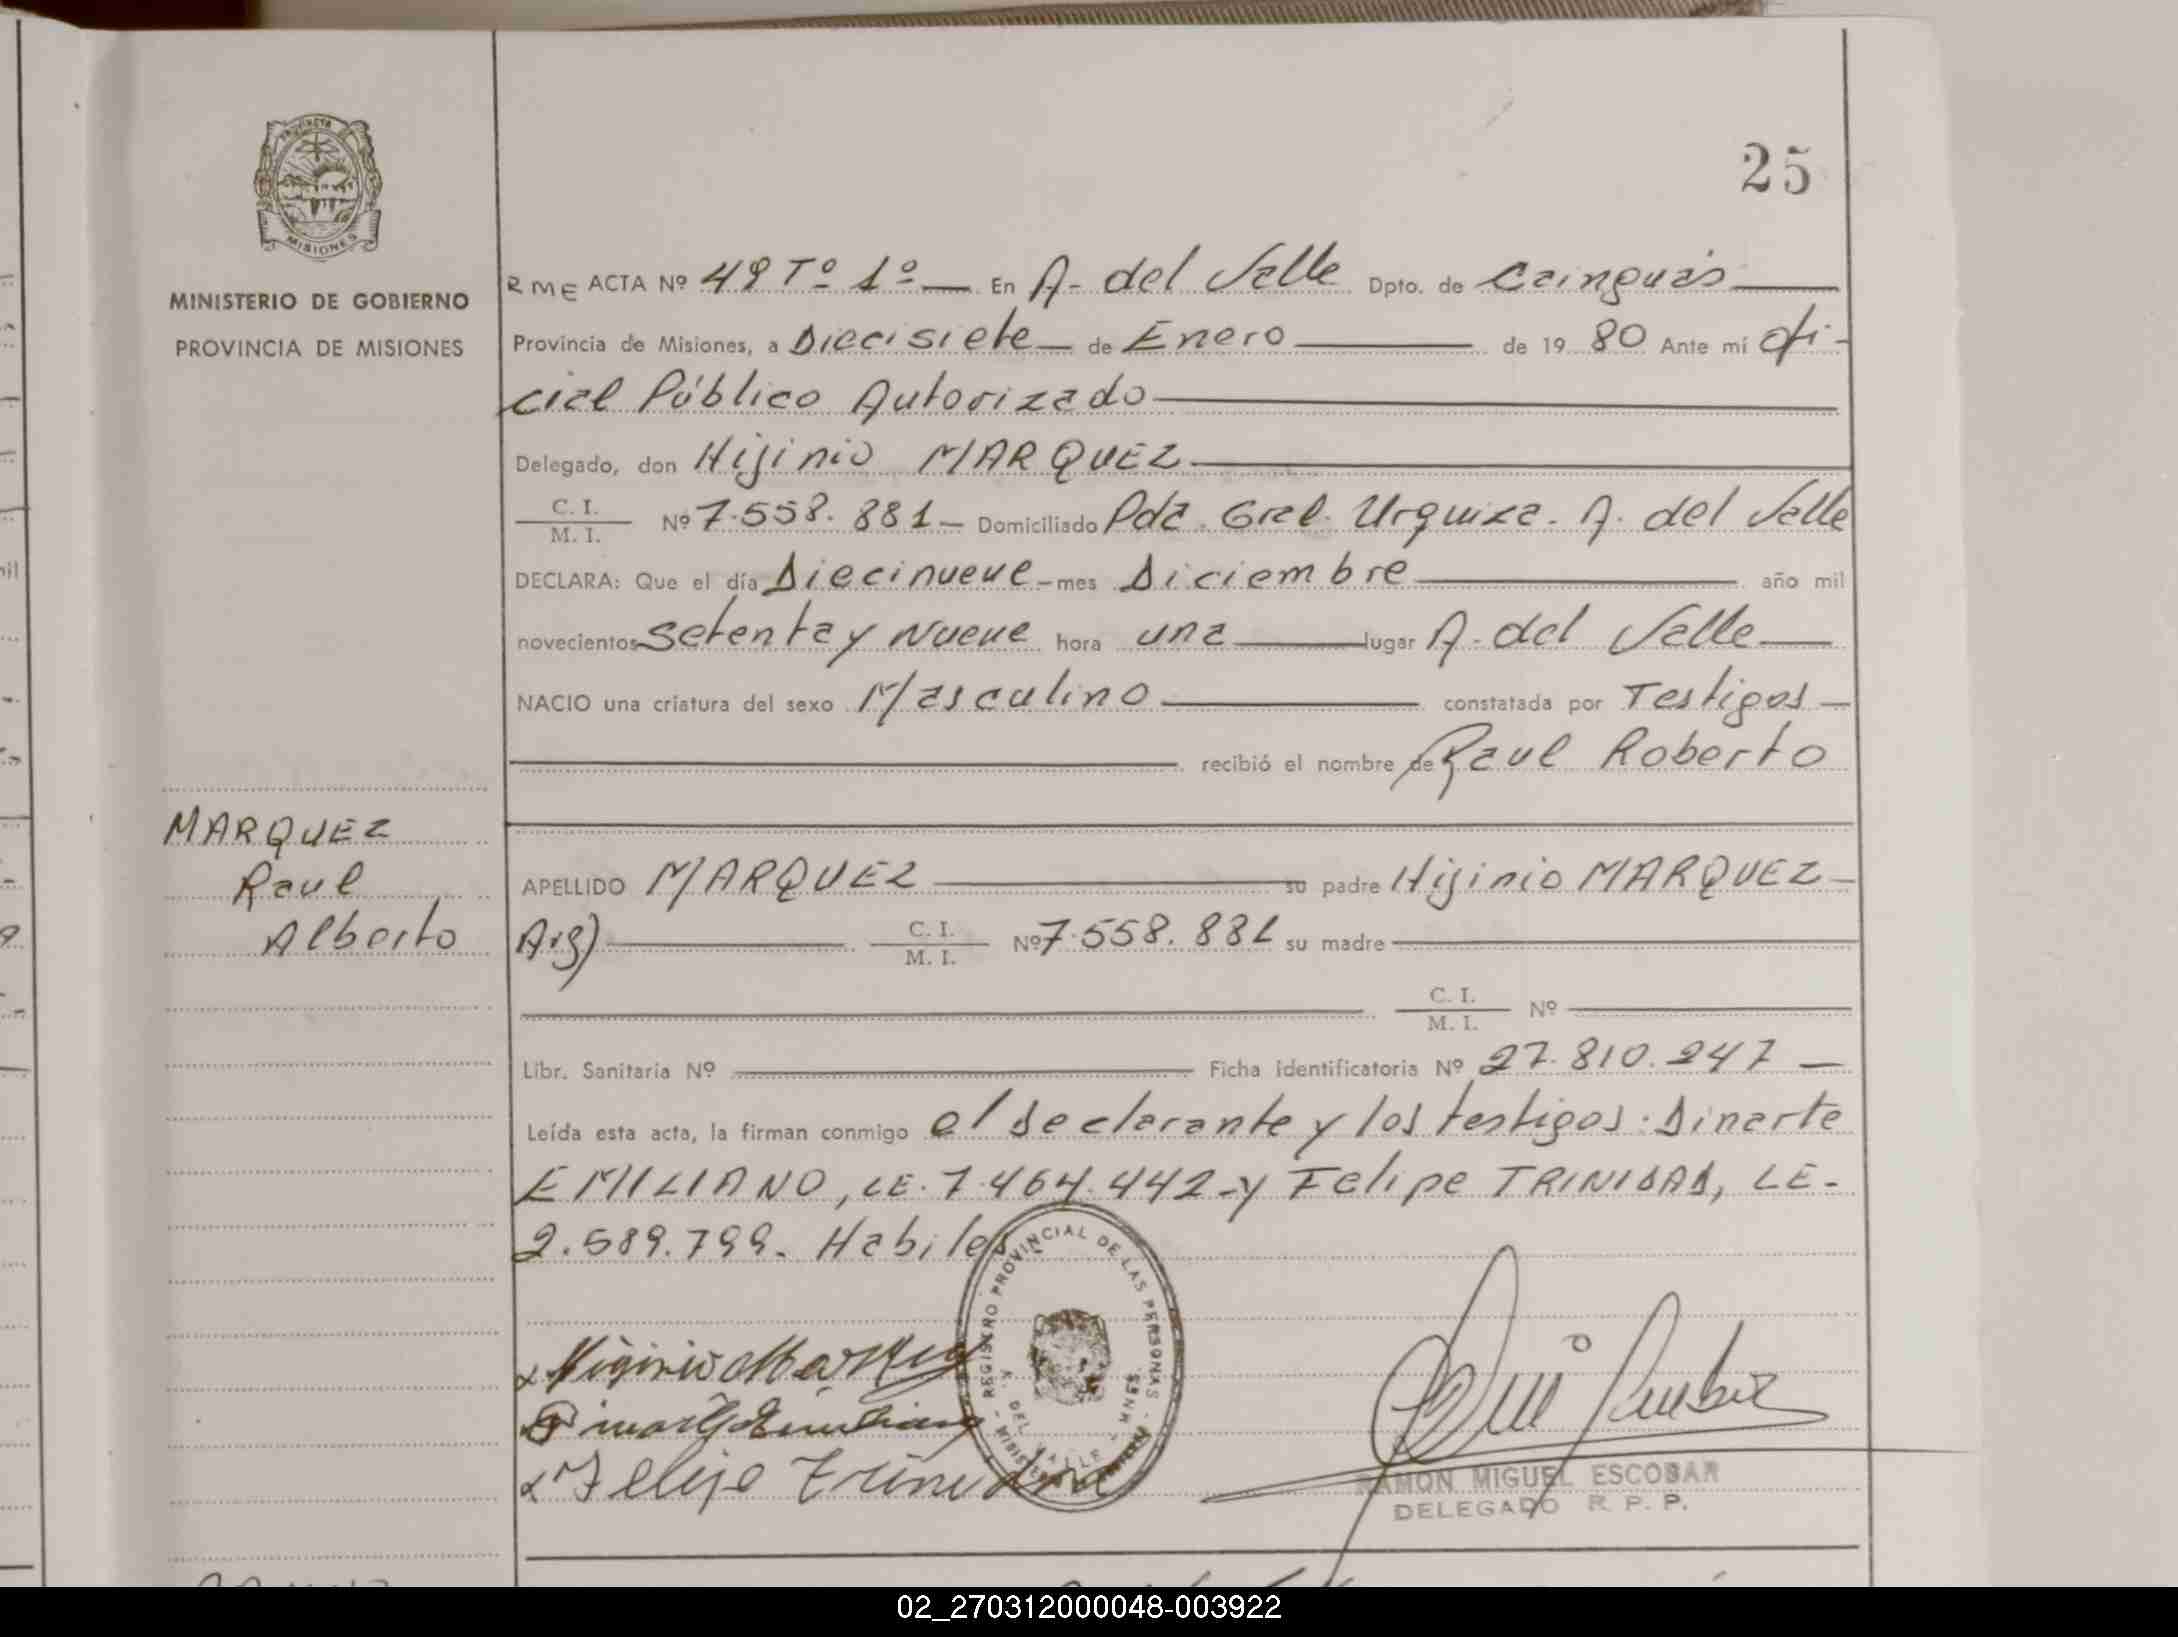 25
PROVINCIA
MISIONES
MINISTERIO DE GOBIERNO
PROVINCIA DE MISIONES
RME ACTA Nº 49 Tº 1º — En A. del Valle Dpto. de Cainguás
Provincia de Misiones, a Diecisiete de Enero de 19 80 Ante mí Ofi-
cial Público Autorizado
Delegado, don Higinio MARQUEZ
C. I.
M. I.
Nº 7.558.881 — Domiciliado Pda. Gral. Urquiza. A. del Valle
DECLARA: Que el día Diecinueve - mes Diciembre año mil
novecientos Setenta y Nueve hora una lugar A. del Valle
NACIO una criatura del sexo Masculino constatada por Testigos
recibió el nombre de Raul Roberto
MARQUEZ
Raul
Alberto
APELLIDO MARQUEZ su padre Higinio MARQUEZ
Arg) C. I.
M. I.
Nº 7.558.881 su madre
C. I.
M. I.
Nº
Libr. Sanitaria Nº Ficha identificatoria Nº 27.810.247 —
Leída esta acta, la firman conmigo el declarante y los testigos: Dinarte
EMILIANO, LE. 7.464.442 - y Felipe TRINIDAD, LE-
2.589.799. Habiles
REGISTRO PROVINCIAL DE LAS PERSONAS
DEL VALLE - MNES.
Felipe Trinidad
RAMON MIGUEL ESCOBAR
DELEGADO R. P. P.
02_270312000048-003922